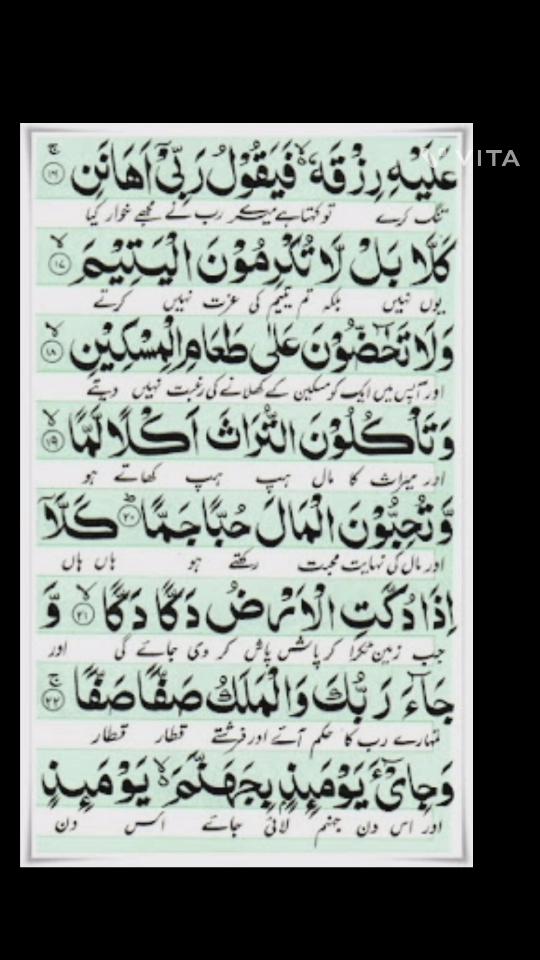 عَلَيْهِ رِزْقَهٗ ۙ۬ فَيَقُوْلُ رَبِّيْۤ اَهَانَنِ ۚ‏﴿۱۶﴾
VITA
تنگ کرے تو کہتا ہے میرے رب نے مجھے خوار کیا
كَلَّا بَلْ لَّا تُكْرِمُوْنَ الْيَتِيْمَ ۙ‏﴿۱۷﴾
یوں نہیں بلکہ تم یتیم کی عزت نہیں کرتے
وَلَا تَحٰٓضُّوْنَ عَلٰى طَعَامِ الْمِسْكِيْنِ ۙ‏﴿۱۸﴾
اور آپس میں ایک کو مسکین کے کھلانے کی رغبت نہیں دیتے
وَتَاْكُلُوْنَ التُّرَاثَ اَكْلًا لَّمًّا ۙ‏﴿۱۹﴾
اور میراث کا مال ہپ ہپ کھاتے ہو
وَّتُحِبُّوْنَ الْمَالَ حُبًّا جَمًّا ؕ‏﴿۲۰﴾ كَلَّاۤ
اور مال کی نہایت محبت رکھتے ہو ہاں ہاں
اِذَا دُكَّتِ الْاَرْضُ دَكًّا دَكًّا ۙ‏﴿۲۱﴾ وَّ
جب زمین ٹکرا کر پاش پاش کر دی جائے گی اور
جَآءَ رَبُّكَ وَالْمَلَكُ صَفًّا صَفًّا ۚ‏﴿۲۲﴾
تمہارے رب کا حکم آئے اور فرشتے قطار قطار
وَجِایْٓءَ يَوْمَىِٕذٍۭ بِجَهَنَّمَ ۙ يَوْمَىِٕذٍ
اور اس دن جہنم لائی جائے اس دن